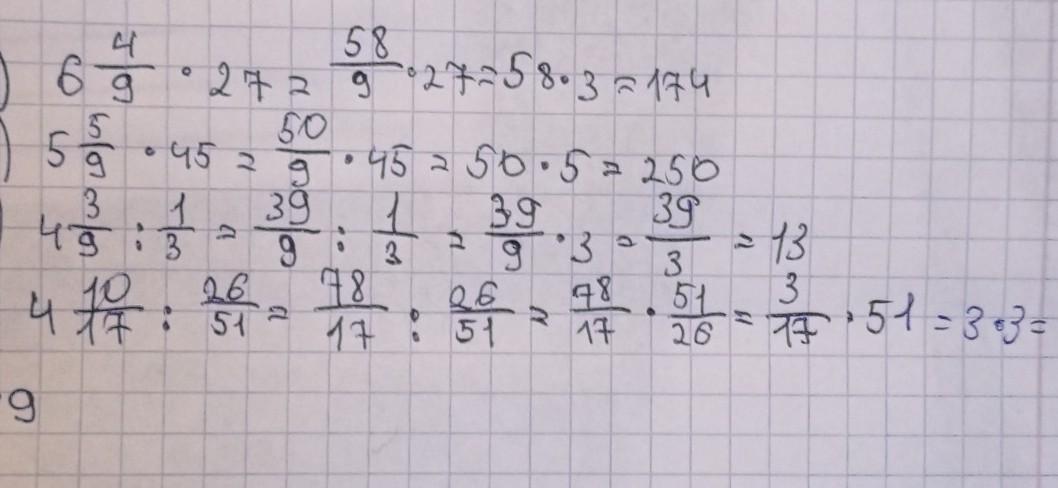 ) 6 4/9 · 27 = 58/9 · 27 = 58 · 3 = 174
) 5 5/9 · 45 = 50/9 · 45 = 50 · 5 = 250
) 4 3/9 : 1/3 = 39/9 : 1/3 = 39/9 · 3 = 39/3 = 13
4 10/17 : 26/51 = 78/17 : 26/51 = 78/17 · 51/26 = 3/17 · 51 = 3 · 3 =
9